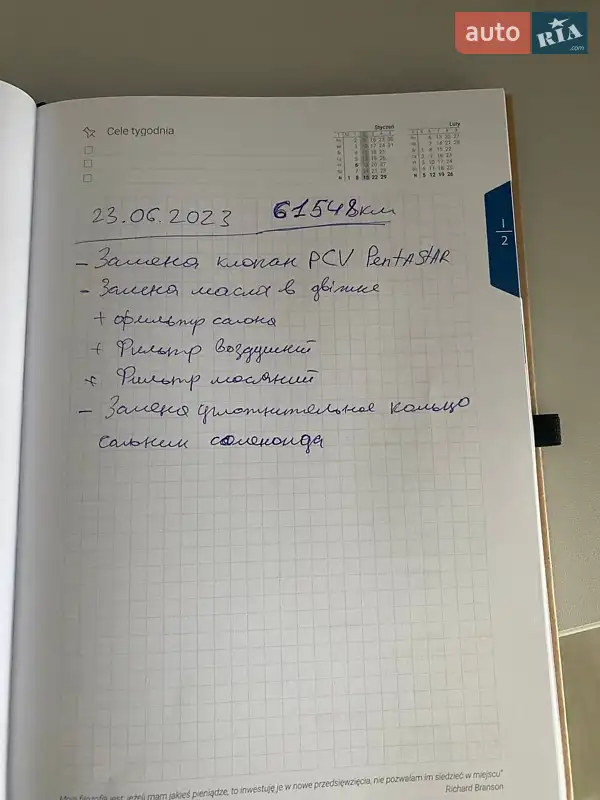 auto RIA .com
Cele tygodnia
Styczeń
Luty
23.06.2023 61548км
1/2
- Замена клапан PCV PentAStAR
- Замена масла в двіжке
+ фильтр салона
+ Фильтр воздушний
+ Фильтр масляний
- Замена уплотнительное кольцо
сальник соленоида
Moja filozofia jest: jeżeli mam jakieś pieniądze, to inwestuję je w nowe przedsięwzięcia, nie pozwalam im siedzieć w miejscu"
Richard Branson